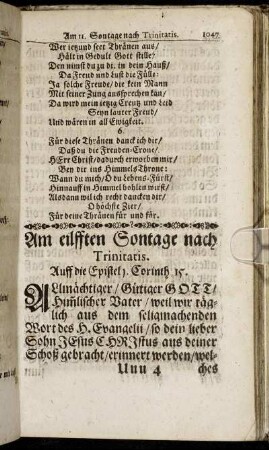 Am 11. Sontage nach Trinitatis. 1047
Wer jetzund seet Thränen aus/
Hält in Gedult Gott stille/
Den nimst du zu dir in dein Hauß/
Da Freud und Lust die Fülle:
Ja solche Freude/ die kein Mann
Mit seiner Zung aussprechen kan/
Da wird mein jetzig Creutz und Leid
Seyn lauter Freud/
Und wären in all Ewigkeit.
6.
Für diese Thränen danck ich dir/
Daß du die Freuden-Crone/
HErr Christ/ dadurch erworben mir/
Bey dir ins Himmels Throne:
Wann du mich/ O du Lebens-Fürst/
Hinnauff in Himmel hohlen wirst/
Alsdann wil ich recht dancken dir/
O höchste Zier/
Für deine Thränen für und für.
Am eilfften Sontage nach
Trinitatis.
Auff die Epistel 1. Corinth 15.
ALlmächtiger/ Gütiger GOTT/
Him̃lischer Vater/ weil wir täg-
lich aus dem seligmachenden
Wort des H. Evangelii/ so dein lieber
Sohn JEsus CHRJstus aus deiner
Schoß gebracht/ erinnert werden/ wel-
Uuu 4 ches